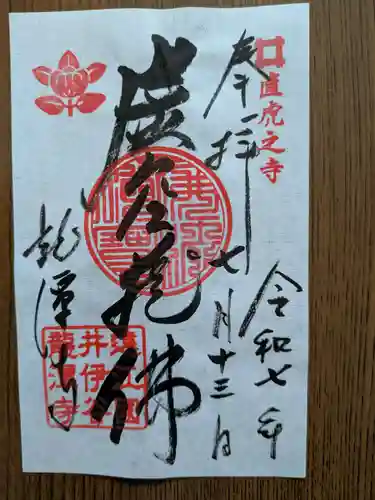 直虎之寺
奉拝
令和七年
七月十三日
虚空蔵佛
龍潭寺
遠江國
井伊谷
龍潭寺